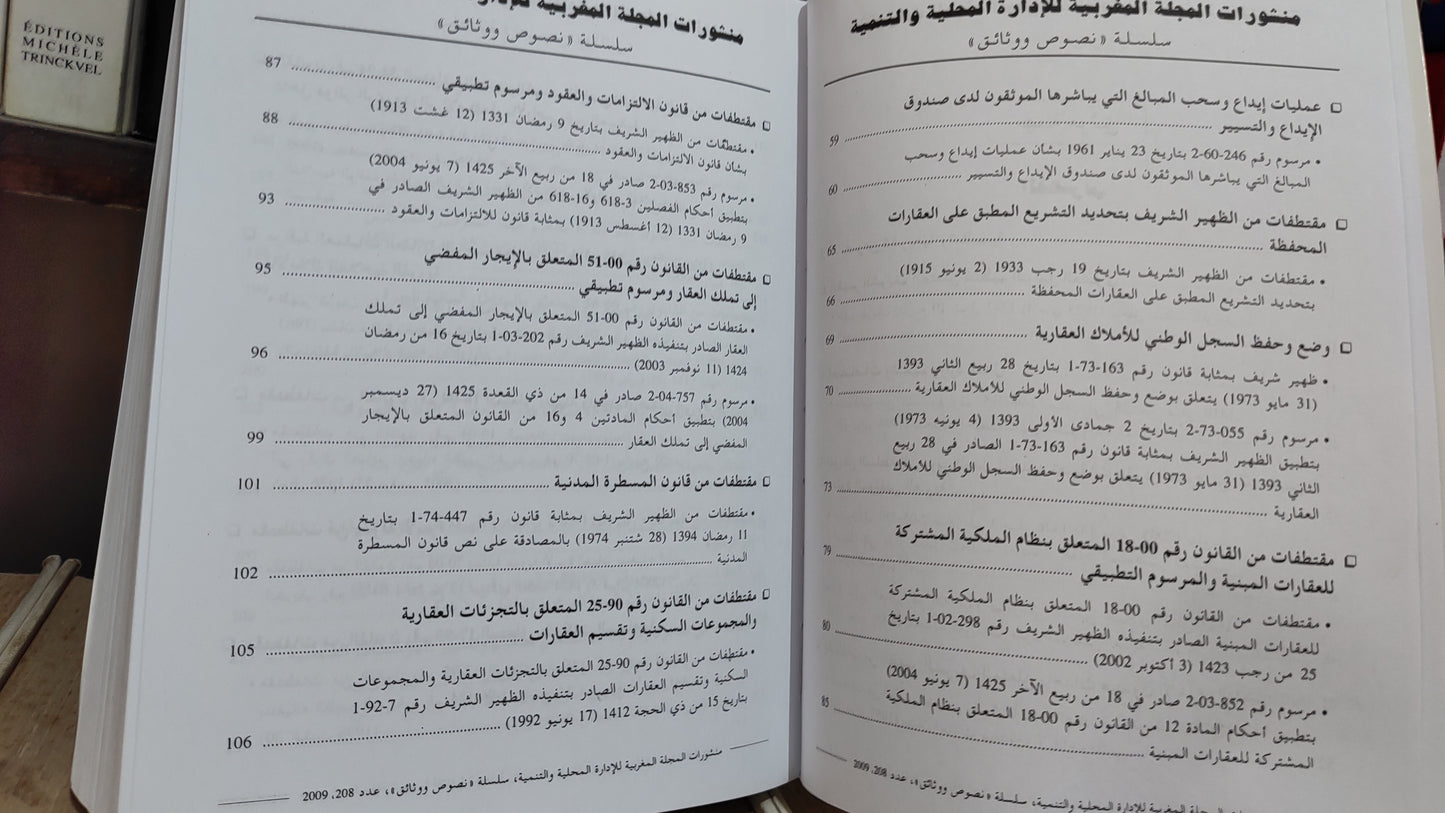 ÉDITIONS
MICHÈLE
TRINCKVEL
منشورات المجلة المغربية للإدارة المحلية والتنمية
سلسلة «نصوص ووثائق»
❑ عمليات إيداع وسحب المبالغ التي يباشرها الموثقون لدى صندوق
الإيداع والتسيير ........ 59
• مرسوم رقم 246-60-2 بتاريخ 23 يناير 1961 بشأن عمليات إيداع وسحب
المبالغ التي يباشرها الموثقون لدى صندوق الإيداع والتسيير ........ 60
❑ مقتطفات من الظهير الشريف بتحديد التشريع المطبق على العقارات
المحفظة ........ 65
• مقتطفات من الظهير الشريف بتاريخ 19 رجب 1933 (2 يونيو 1915)
بتحديد التشريع المطبق على العقارات المحفظة ........ 66
❑ وضع وحفظ السجل الوطني للأملاك العقارية ........ 69
• ظهير شريف بمثابة قانون رقم 163-73-1 بتاريخ 28 ربيع الثاني 1393
(31 مايو 1973) يتعلق بوضع وحفظ السجل الوطني للأملاك العقارية ........ 70
• مرسوم رقم 055-73-2 بتاريخ 2 جمادى الأولى 1393 (4 يونيه 1973)
بتطبيق الظهير الشريف بمثابة قانون رقم 163-73-1 الصادر في 28 ربيع
الثاني 1393 (31 مايو 1973) يتعلق بوضع وحفظ السجل الوطني للأملاك
العقارية ........ 73
❑ مقتطفات من القانون رقم 00-18 المتعلق بنظام الملكية المشتركة
للعقارات المبنية والمرسوم التطبيقي ........ 79
• مقتطفات من القانون رقم 00-18 المتعلق بنظام الملكية المشتركة
للعقارات المبنية الصادر بتنفيذه الظهير الشريف رقم 298-02-1 بتاريخ
25 من رجب 1423 (3 أكتوبر 2002) ........ 80
• مرسوم رقم 852-03-2 صادر في 18 من ربيع الآخر 1425 (7 يونيو 2004)
بتطبيق أحكام المادة 12 من القانون رقم 00-18 المتعلق بنظام الملكية
المشتركة للعقارات المبنية ........ 85
المجلة المغربية للإدارة المحلية والتنمية، سلسلة «نصوص ووثائق»، عدد 208، 2009
منشورات المجلة المغربية للإدار
سلسلة «نصوص ووثائق»
❑ مقتطفات من قانون الالتزامات والعقود ومرسوم تطبيقي ........ 87
• مقتطفات من الظهير الشريف بتاريخ 9 رمضان 1331 (12 غشت 1913)
بشأن قانون الالتزامات والعقود ........ 88
• مرسوم رقم 853-03-2 صادر في 18 من ربيع الآخر 1425 (7 يونيو 2004)
بتطبيق أحكام الفصلين 3-618 و16-618 من الظهير الشريف الصادر في
9 رمضان 1331 (12 أغسطس 1913) بمثابة قانون للالتزامات والعقود ........ 93
❑ مقتطفات من القانون رقم 00-51 المتعلق بالإيجار المفضي
إلى تملك العقار ومرسوم تطبيقي ........ 95
• مقتطفات من القانون رقم 00-51 المتعلق بالإيجار المفضي إلى تملك
العقار الصادر بتنفيذه الظهير الشريف رقم 202-03-1 بتاريخ 16 من رمضان
1424 (11 نوفمبر 2003) ........ 96
• مرسوم رقم 757-04-2 صادر في 14 من ذي القعدة 1425 (27 ديسمبر
2004) بتطبيق أحكام المادتين 4 و16 من القانون المتعلق بالإيجار
المفضي إلى تملك العقار ........ 99
❑ مقتطفات من قانون المسطرة المدنية ........ 101
• مقتطفات من الظهير الشريف بمثابة قانون رقم 447-74-1 بتاريخ
11 رمضان 1394 (28 شتنبر 1974) بالمصادقة على نص قانون المسطرة
المدنية ........ 102
❑ مقتطفات من القانون رقم 90-25 المتعلق بالتجزئات العقارية
والمجموعات السكنية وتقسيم العقارات ........ 105
• مقتطفات من القانون رقم 90-25 المتعلق بالتجزئات العقارية والمجموعات
السكنية وتقسيم العقارات الصادر بتنفيذه الظهير الشريف رقم 7-92-1
بتاريخ 15 من ذي الحجة 1412 (17 يونيو 1992) ........ 106
منشورات المجلة المغربية للإدارة المحلية والتنمية، سلسلة «نصوص ووثائق»، عدد 208، 2009